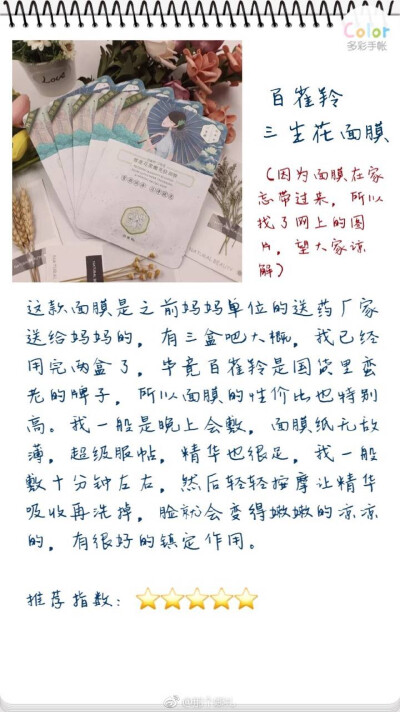 Color
多彩手帐
Love
百雀羚
三生花面膜
(因为面膜在家
忘带过来，所以
找了网上的图
片，望大家谅
解)
这款面膜是之前妈妈单位的送药厂家
送给妈妈的，有三盒吧大概，我已经
用完两盒了，毕竟百雀羚是国货里蛮
老的牌子，所以面膜的性价比也特别
高。我一般是晚上会敷，面膜纸无敌
薄，超级服帖，精华也很足，我一般
敷十分钟左右，然后轻轻按摩让精华
吸收再洗掉，脸就会变得嫩嫩的凉凉
的，有很好的镇定作用。
推荐指数：